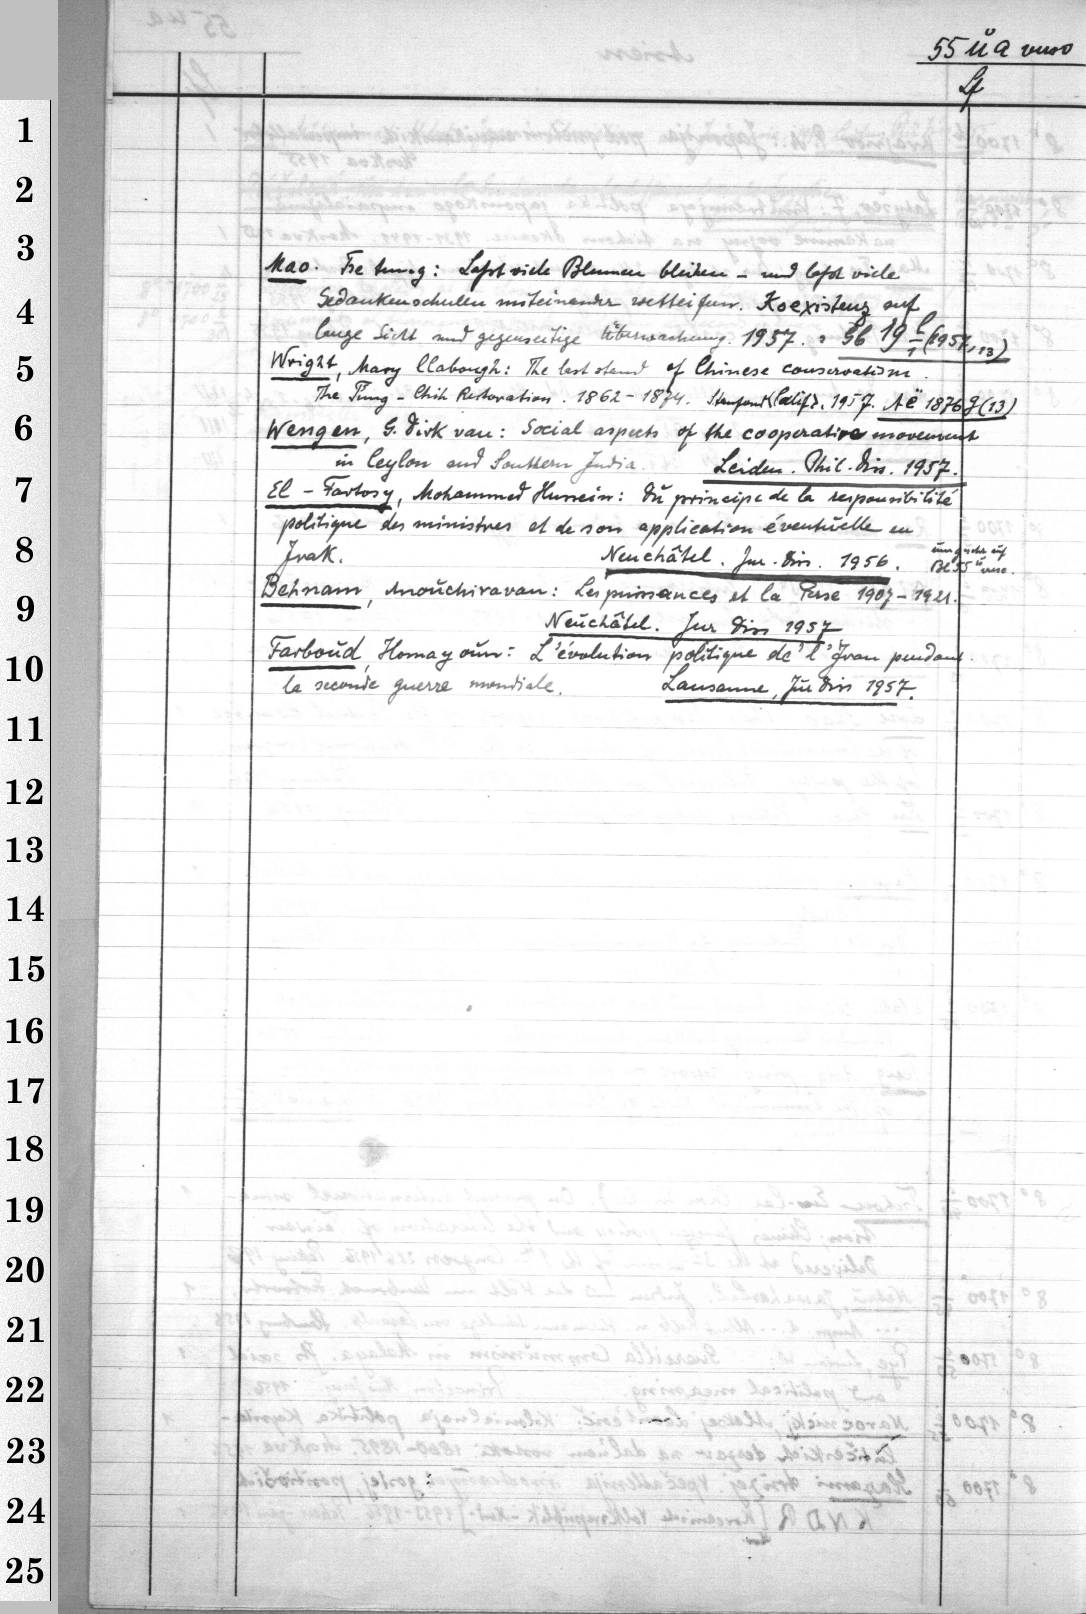 55 üa verso
Lf
1
2
3
4
5
6
7
8
9
10
11
12
13
14
15
16
17
18
19
20
21
22
23
24
25
Mao. Tse tung: Laßt viele Blumen blühen – und laßt viele
Gedankenschulen miteinander wetteifern. Koexistenz auf
lange Sicht und gegenseitige Überwachung. 1957. : Gb 19 l/1 (1957,13)
Wright, Mary Clabough: The last stand of Chinese conservatism.
The Tung-Chih Restoration. 1862–1874. Stanford (Calif). 1957. Në 1876 g (13)
Wengen, G. Dirk van: Social aspects of the cooperative movement
in Ceylon and Southern India. Leiden. Phil. Diss. 1957.
El-Fartosy, Mohammed Hussein: Du principe de la responsibilité
politique des ministres et de son application éventuelle en
Irak. Neuchâtel. Jur. Diss. 1956.
Behnam, Anouchiravan: Les puissances et la Perse 1907–1921.
Neuchâtel. Jur Diss 1957
Farboud, Homayoun: L'évolution politique de l'Iran pendant
la seconde guerre mondiale. Lausanne, Jur Diss 1957.